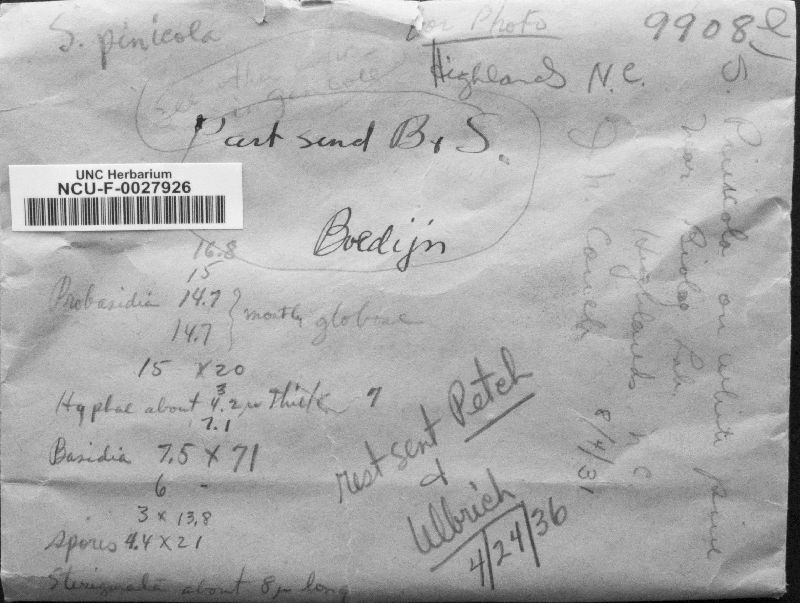 S. pinicola
for Photo
9908
Highlands N.C.
See other
in gen coll
Part send B & S.
Boedijn
UNC Herbarium
NCU-F-0027926
16.8
15
Probasidia 14.7
14.7
mostly globose
15 x 20
3
Hyphae about 4.2µ thick 7
7.1
Basidia 7.5 x 71
6 -
3 x 13.8
Spores 4.4 x 21
Sterigmata about 8µ long
rest sent Petch
&
Ulbrich
4/24/36
S. Pinicola on white pine
near Biolog Lab
Highlands N C
J. N. Couch 8/4/31